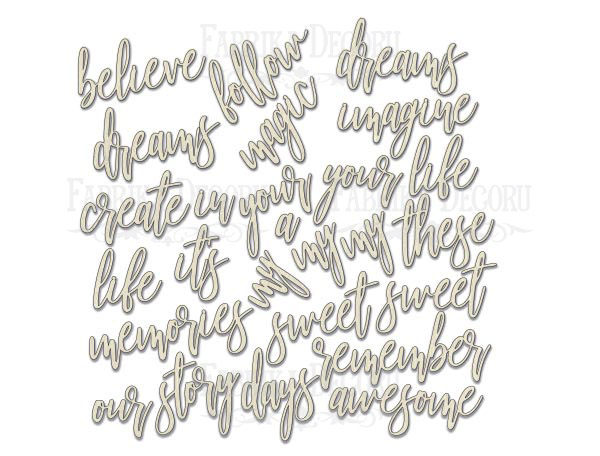 FABRIKA DECORU
believe follow dreams
dreams magic imagine
create in your your life
FABRIKA DECORU FABRIKA DECORU
a
life it's my my my these
memories sweet sweet
FABRIKA DECORU
our story days remember
awesome